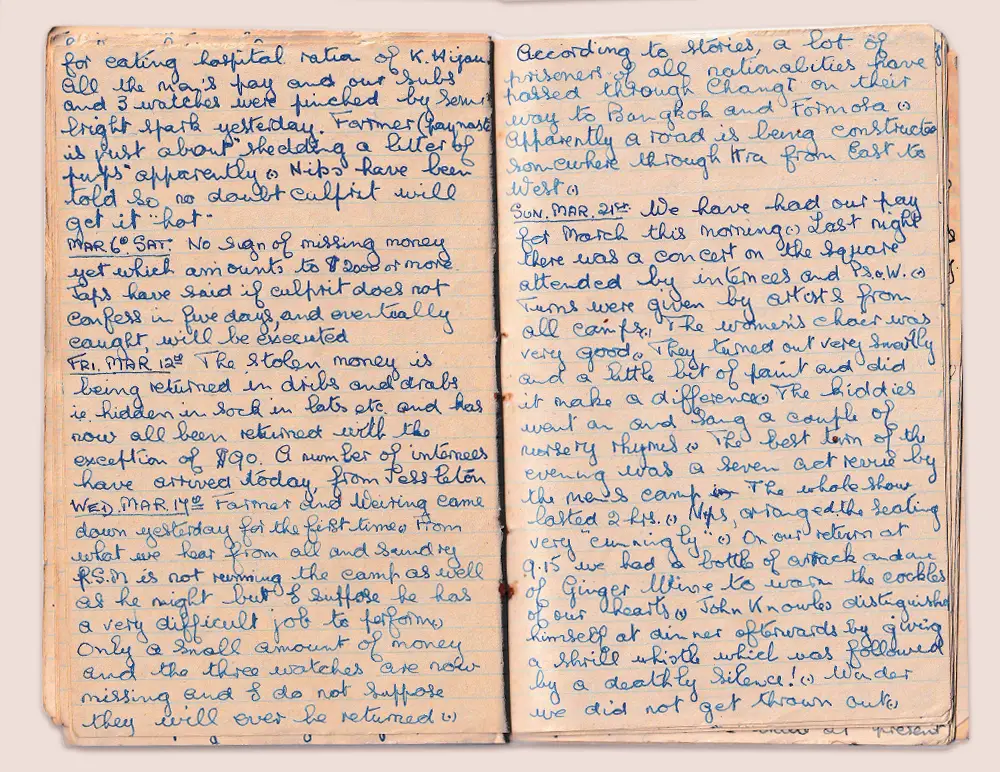 for eating hospital ration of K. Hijau.
All the men's pay and our "subs"
and 3 watches were pinched by some
bright spark yesterday. Farmer (paymaster
is just about "shedding a litter of
pups" apparently. Nips have been
told so, no doubt culprit will
get it "hot"
MAR 6th SAT. No sign of missing money
yet which amounts to $2000 or more.
Japs have said if culprit does not
confess in five days, and eventually
caught will be executed
FRI. MAR 12th The stolen money is
being returned in dribs and drabs
ie. hidden in sock in lats etc. and has
now all been returned with the
exception of $90. A number of internees
have arrived today from Jessleton
WED. MAR. 17th Farmer and Weiring came
down yesterday for the first time. From
what we hear from all and sundry
R.S.M is not running the camp as well
as he might but I suppose he has
a very difficult job to perform.
Only a small amount of money
and the three watches are now
missing and I do not suppose
they will ever be returned.
According to stories, a lot of
prisoners of all nationalities have
passed through Changi on their
way to Bangkok and Formosa.
Apparently a road is being constructed
somewhere through Kra from East to
West.
SUN. MAR. 21st. We have had our pay
for March this morning. Last night
there was a concert on the square
attended by internees and Ps.o.W.
Turns were given by artists from
all camps. The women's choir was
very good. They turned out very smartly
and a little bit of paint and did
it make a difference. The kiddies
went on and sang a couple of
nursery rhymes. The best turn of the
evening was a seven act revue by
the men's camp. The whole show
lasted 2 hrs. Nips, arranged the seating
very "cunningly". On our return at
9.15 we had a bottle of arrack and one
of Ginger Wine to warm the cockles
of our hearts. John Knowles distinguished
himself at dinner afterwards by giving
a shrill whistle which was followed
by a deathly silence! Wonder
we did not get thrown out.
at present